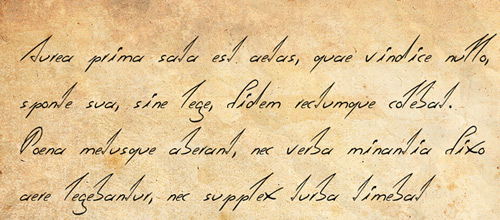 Aurea prima sata est aetas, quae vindice nullo,
sponte sua, sine lege, fidem rectumque colebat.
Poena metusque aberant, nec verba minantia fixo
aere legebantur, nec supplex turba timebat